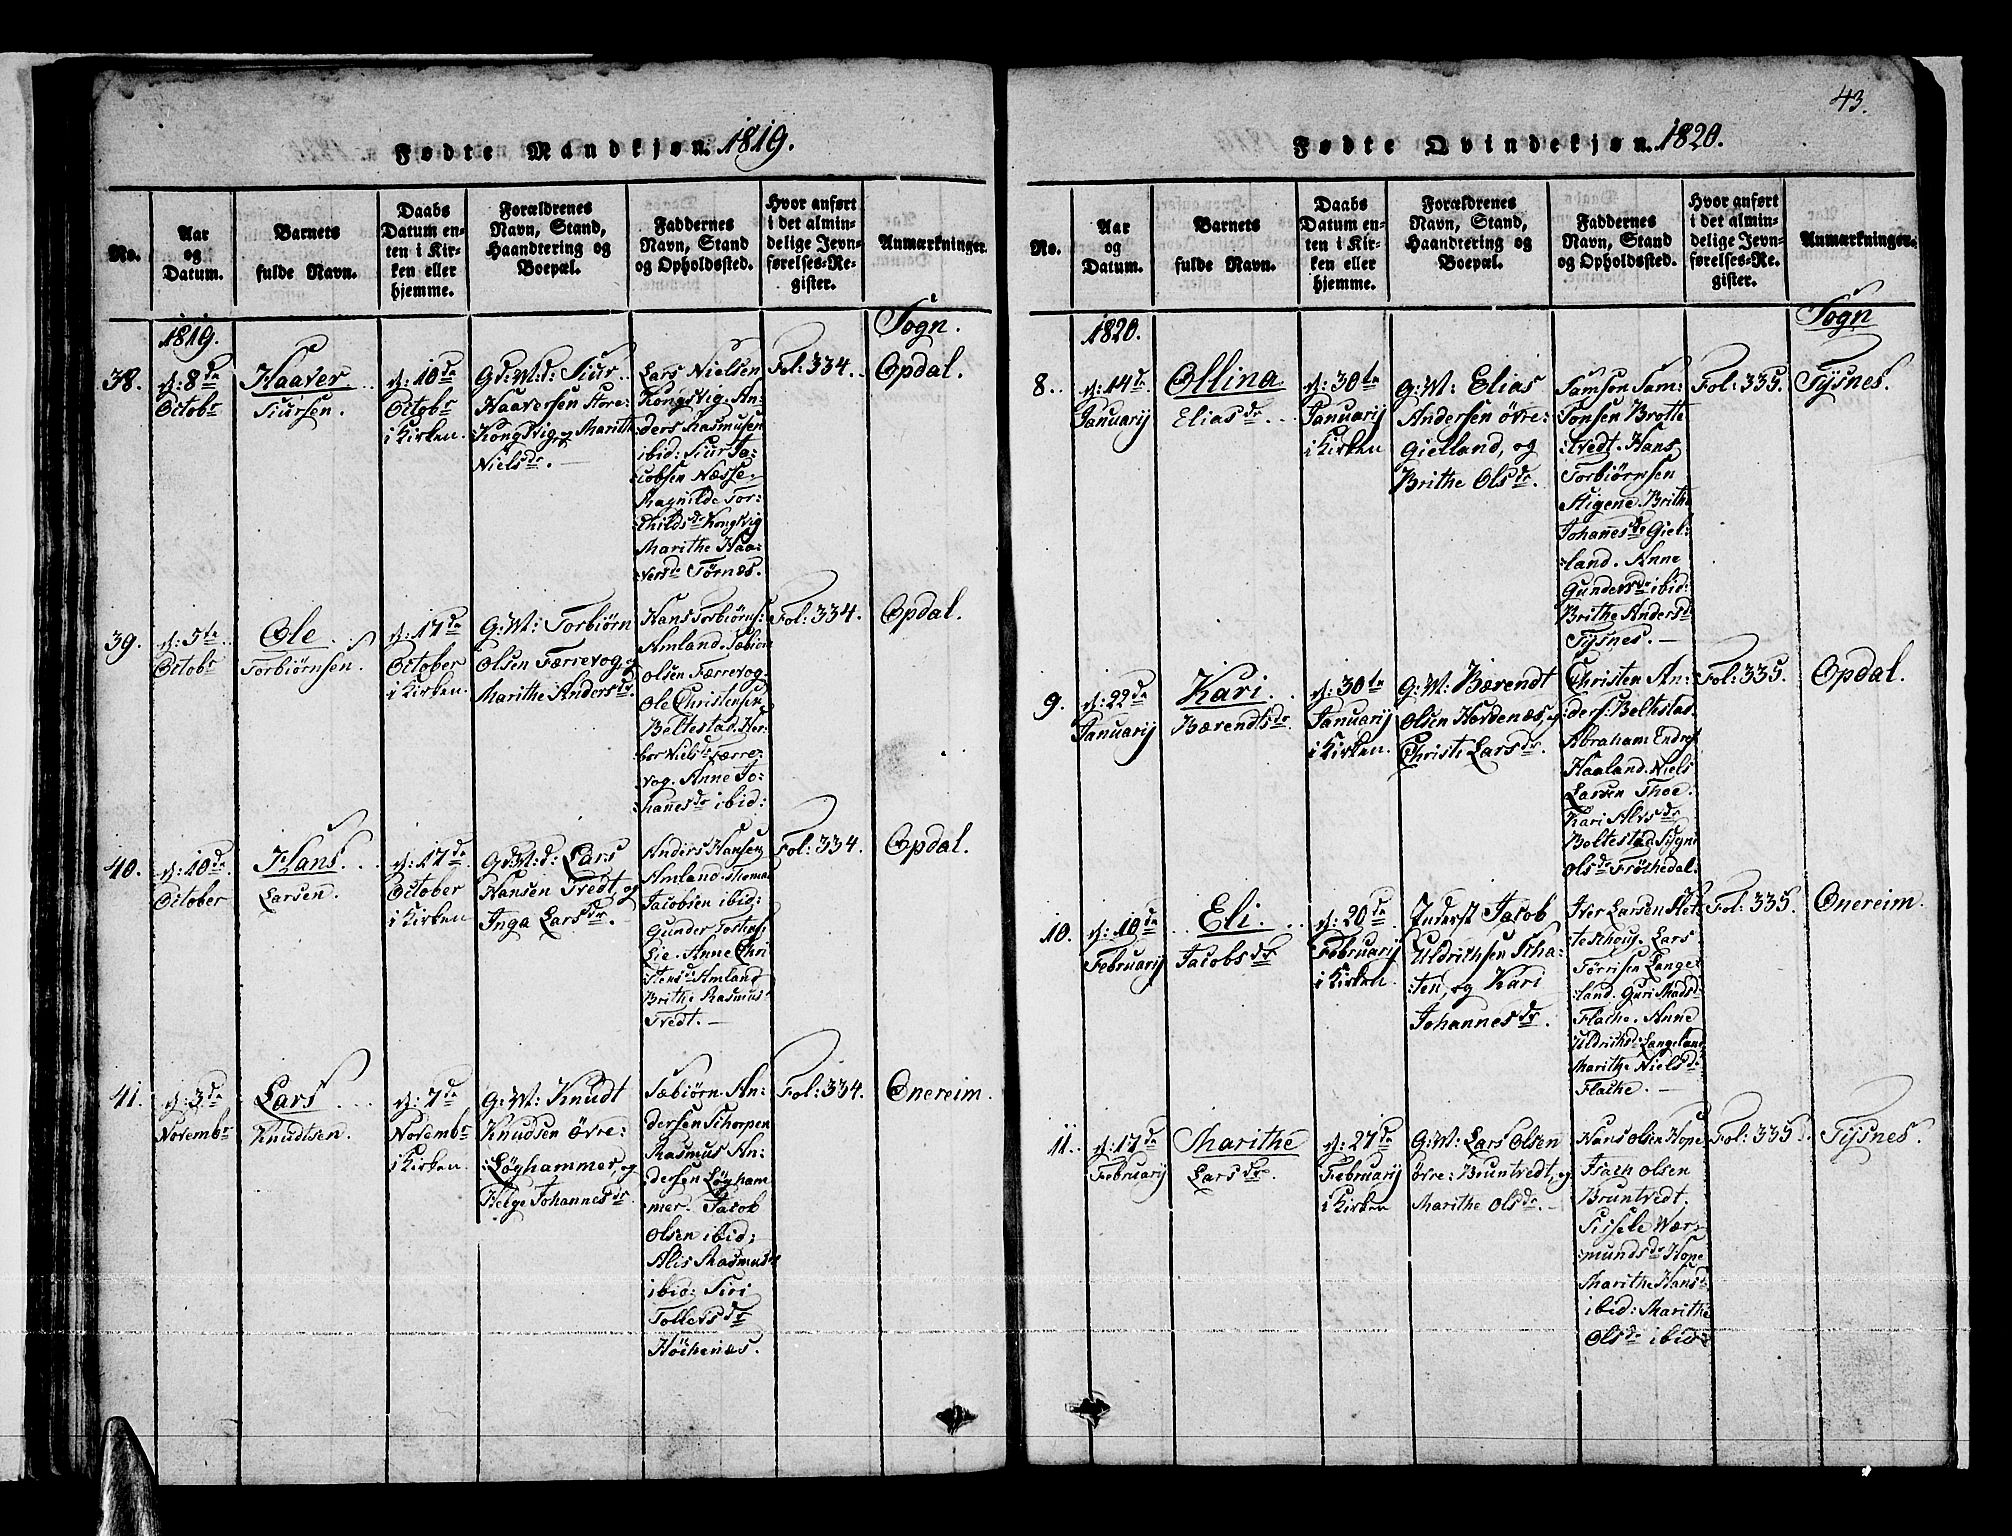 Fødte Mandkjøn. 1819.
No.
Aar
og
Datum.
Barnets
fulde Navn.
Daabs
Datum en-
ten i Kir-
ken eller
hjemme.
Forældrenes
Navn, Stand,
Haandtering og
Boepæl.
Faddernes
Navn, Stand
og Opholdssted.
Hvor anført
i det almin-
delige Jevn-
førelses-Re-
gister.
Anmærkninger.
1819.
Sogn.
38.
d: 8de
Octobr
Haaver
Siursen.
d: 10de
Octobr
i Kirken.
Gd: Md: Siur
Haaversen Store:
Kongsvig, og Marithe
Nielsdr.
Lars Nielsen
Kongsvig. An:
ders Rasmusen
ibid: Siur Ja:
cobsen Næsse.
Magnilde Tor:
childsdr Kongsvig
Marithe Haa:
versdr Tørnæs.
Fol: 334.
Opdal.
39.
d: 5te
Octobr
Ole
Torbiørnsen.
d: 17de
October
i Kirken.
G: M: Torbiørn
Olsen Færrevog, og
Marithe Andersdr.
Hans Torbiørns:
Amland. Sæbiørn
Olsen Færrevog.
Ole Christensen
Beltestad. Her:
bor Nielsdr Færre:
vog. Anne Jo:
hanesdr ibid:
Fol: 334.
Opdal.
40.
d: 10de
October
Hans
Larsen.
d: 17de
October
i Kirken
Gd: Md: Lars
Hansen Tvedt, og
Inga Larsdr.
Anders Hansen
Amland. Thomas
Jacobsen ibid:
Gunder Tostens:
Lie. Anne Chri
stensdr Amland
Brithe Rasmus:
Tvedt.
Fol: 334.
Opdal.
41.
d: 3de
Novembr
Lars
Knudtsen.
d: 7de
Novembr
i Kirken.
G: M: Knudt
Knudsen Övre:
Løyhammer, og
Helge Johannesdr
Sæbiørn An:
dersen Skorpen
Rasmus An:
dersen Løyham
mer. Jacob
Olsen ibid:
Alis Rasmusdr
ibid: Siri
Tollersdr
Høikenæs.
Fol: 334.
Onereim.
43.
Fødte Qvindekjøn. 1820.
No.
Aar
og
Datum.
Barnets
fulde Navn.
Daabs
Datum en-
ten i Kir-
ken eller
hjemme.
Forældrenes
Navn, Stand,
Haandtering og
Boepæl.
Faddernes
Navn, Stand
og Opholdssted.
Hvor anført
i det almin-
delige Jevn-
førelses-Re-
gister.
Anmærkninger.
1820.
Sogn
8.
d: 14de
Januarij
Ollina
Eliasdr.
d: 30te
Januarij
i Kirken
G: M: Elias
Andersen övre:
Gielland, og
Brithe Olsdr.
Samson Sam:
sonsen Brotte
tvedt. Hans
Torbiørnsen
Stigene. Brithe
Johanesdr Giel:
land. Anne
Gundersdr ibid:
Brithe Andersdr
Tysnes.
Fol: 335.
Tysnes.
9.
d: 22de
Januarij
Kari
Bærendtsdr
d: 30te
Januarij
i Kirken.
G: M: Bærendt
Olsen Hovdenæs, og
Christi Larsdr.
Christen An:
ders: Beltestad
Abraham Endres
Haaland. Niels
Larsen Thoe.
Kari Alvsdr
Beltestad Signi
Olsdr Frøchedal.
Fol: 335.
Opdal.
10.
d: 10de
Februarij
Eli
Jacobsdr
d: 20de
Februarij
i Kirken.
Inderst Jacob
Uldrichsen Scha:
ten, og Kari
Johannesdr.
Iver Larsen Flet:
teschoug. Lars
Tørrisen Lange:
land. Guri Madsdr
Flache. Anne
Uldrichsdr Langeland
Marithe Nielsdr
Flache.
Fol: 335.
Onereim.
11.
d: 17de
Februarij
Marithe
Larsdr.
d: 27de
Februarij
i Kirken
G: M: Lars Olsen
övre: Bruntvedt, og
Marithe Olsdr.
Hans Olsen Hope
Isach Olsen
Bruntvedt.
Sissele Wær:
mundsdr Hope
Marithe Hansdr
ibid: Marithe
Olsdr ibid:
Fol: 335.
Tysnes.